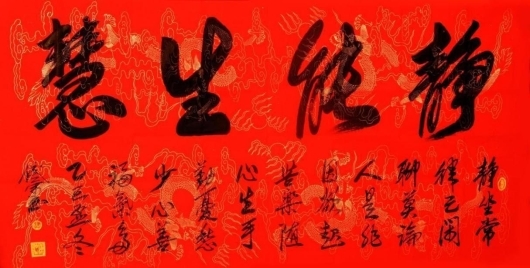 静能生慧
静坐常
律己闲
聊莫论
人是非
因欲起
苦樂随
心生手
勤憂愁
少心善
福氣多
乙巳孟冬